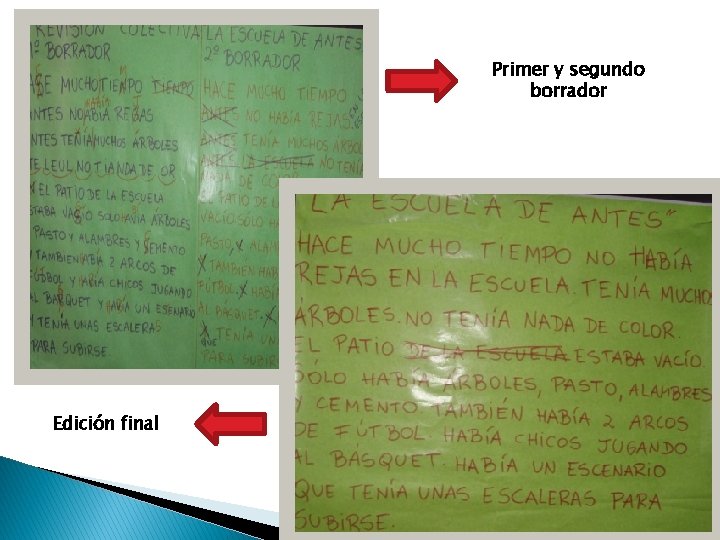 REVISIÓN COLECTIVA
1º BORRADOR
MUCHO TIEMPO TIENPO
HABÍA
ANTES NO ABÍA REGAS
ANTES TENÍA MUCHOS ÁRBOLES
EL PATIO DE LA ESCUELA
ESTABA VACÍO SOLO HAVIA ÁRBOLES
PASTO Y ALAMBRES Y SEMENTO
Y TAMBIEN ABÍA 2 ARCOS DE
FÚDBOL Y CHICOS JUGANDO
AL BARQUET Y UN ESENARIO
Y TENIA UNAS ESCALERAS
PARA SUBIRSE.
LA ESCUELA DE ANTES
2º BORRADOR
HACE MUCHO TIEMPO
ANTES NO HABÍA REJAS.
ANTES TENÍA MUCHOS ÁRBOL
ANTES LA ESCUELA NO TENÍA
NADA DE COLOR
EL PATIO DE LA
VACÍO. SÓLO HAB
PASTO, Y ALAM
Y TAMBIÉN HAB
FÚTBOL. Y HABÍ
AL BÁSQUET. Y
QUE TENÍA UN
PARA SUBIRSE
Primer y segundo
borrador
LA ESCUELA DE ANTES"
HACE MUCHO TIEMPO NO HABÍA
REJAS EN LA ESCUELA. TENÍA MUCHOS
ÁRBOLES. NO TENÍA NADA DE COLOR.
EL PATIO DE LA ESCUELA ESTABA VACÍO.
SÓLO HABÍA ÁRBOLES, PASTO, ALAMBRES
Y CEMENTO. TAMBIÉN HABÍA 2 ARCOS
DE FÚTBOL. HABÍA CHICOS JUGANDO
AL BÁSQUET. HABÍA UN ESCENARIO
QUE TENÍA UNAS ESCALERAS PARA
SUBIRSE.
Edición final